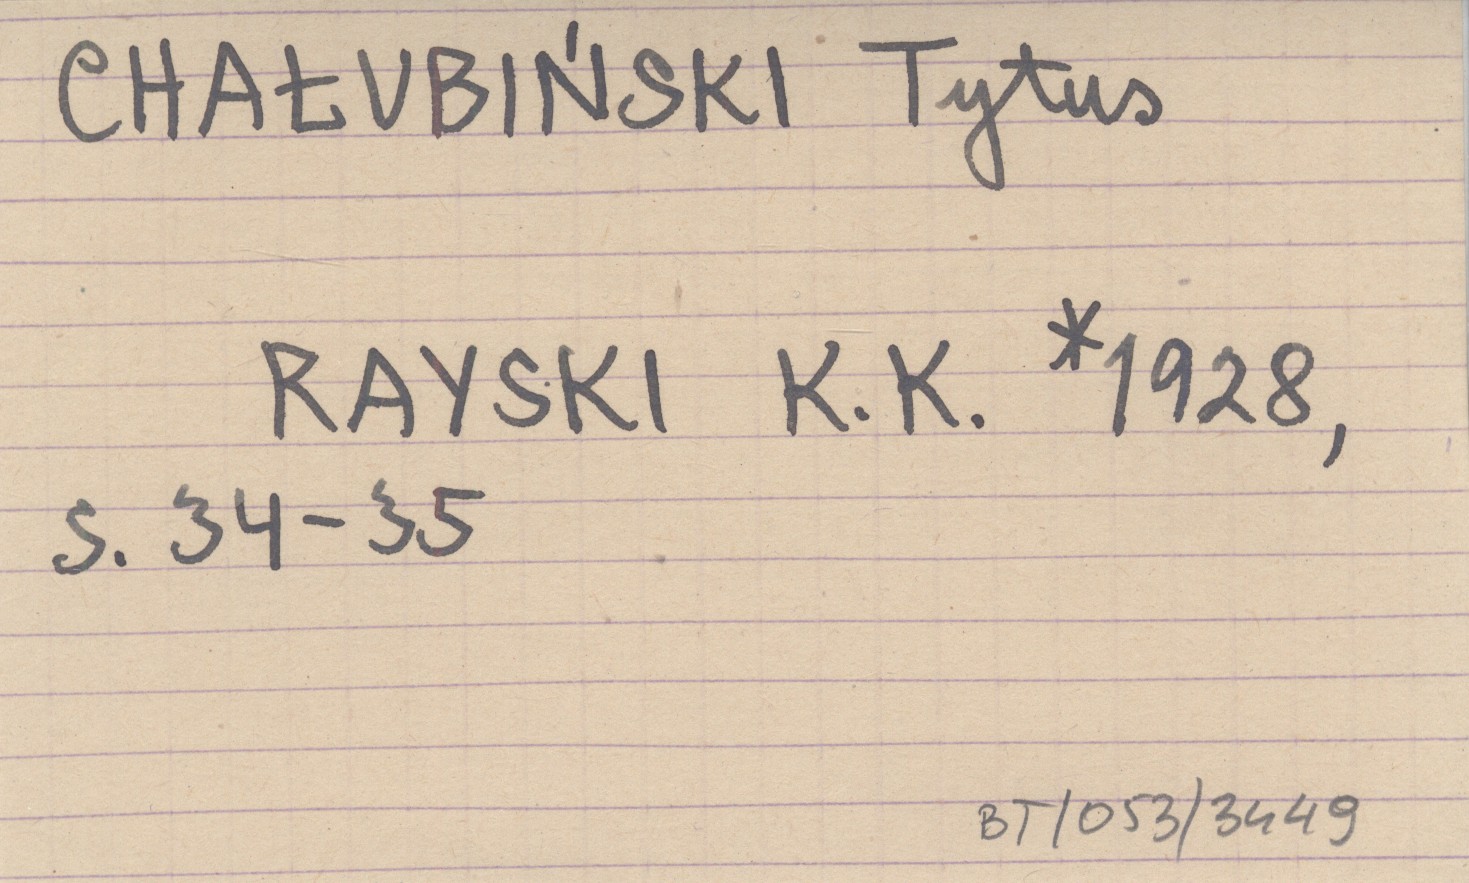 CHAŁUBIŃSKI Tytus
RAYSKI K.K. *1928,
s. 34-35
BT/053/3449